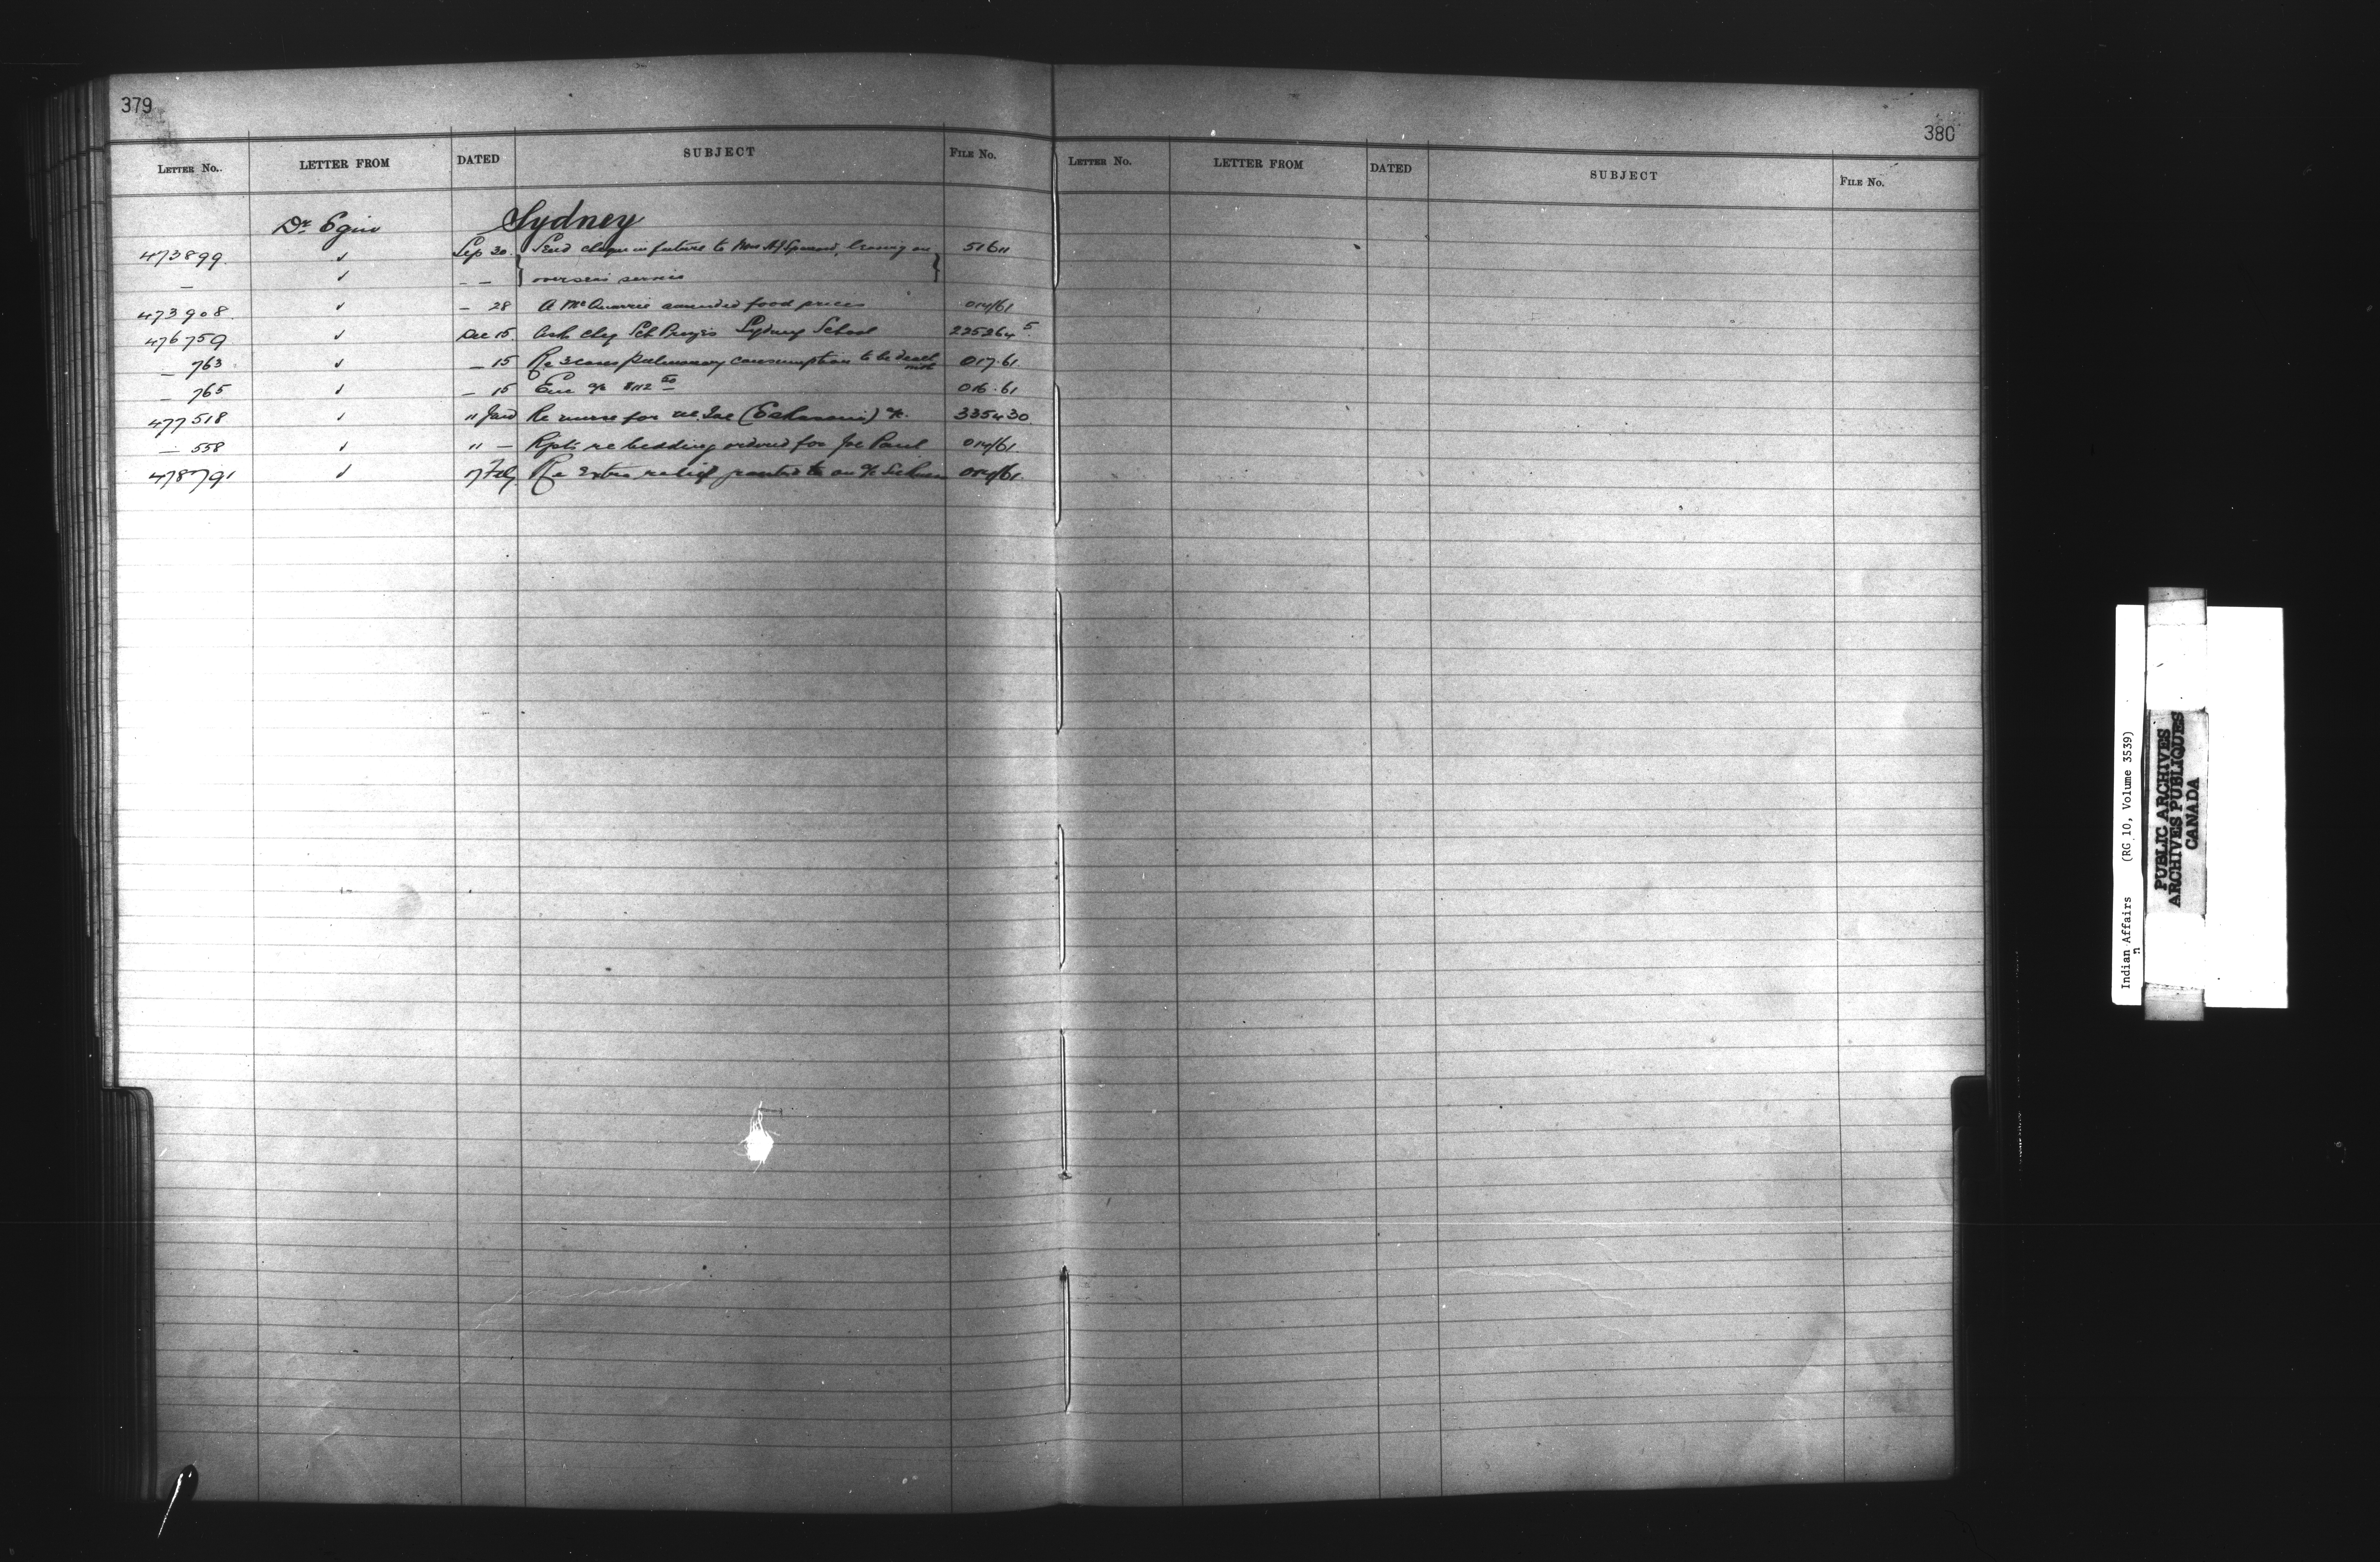 379
LETTER No. LETTER FROM DATED SUBJECT FILE No.
Dr. Sydney
473899 ✓ Sep 30 Send cheque in future to Mrs A J leaving on 51611
— ✓ — — overseas service
473908 ✓ — 28 A McQuarrie amended food prices 014/61
476759 ✓ Dec 15 Ask chq Sch Sydney School 225264 5
— 763 ✓ — 15 Re 3 cases pulmonary consumption to be dealt with 017.61
— 765 ✓ — 15 Enc a/c 016.61
477518 ✓ 11 Jan Re nurse for (Eskasoni) 335430
— 558 ✓ 11 — Rpts re bedding ordered for Joe Paul 014/61
478791 ✓ 7 Feb Re extra relief granted to on a/c 014/61
380
LETTER No. LETTER FROM DATED SUBJECT FILE No.
Indian Affairs (RG 10, Volume 3539)
PUBLIC ARCHIVES
ARCHIVES PUBLIQUES
CANADA